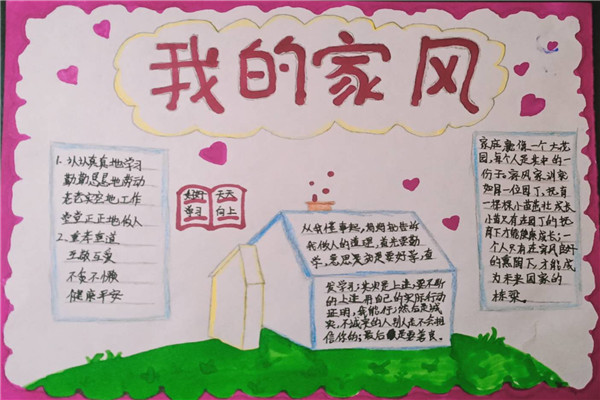 我的家风
1. 认认真真地学习
勤勤恳恳地劳动
老老实实地工作
堂堂正正地做人
2. 重孝重道
互敬互爱
不贪不懒
健康平安
好好 天天
学习 向上
从我懂事起,妈妈把告诉
我做人的道理,首先要勤
学,意思就是要好学,
爱学习;其次是上进,要不断
的上进,用自己的实际行动
证明,我能行;然后是诚
实,不诚实的人别人是不会相
信你的;最后是要善良。
家庭就像一个大花
园,每个人是其中的一
份子。家风家训宛
如同一位园丁,抚育
一棵棵小苗茁壮成长
小苗只有在园丁的抚
育下才能健康成长;一
个人只有在家风良好
的熏陶下,才能成
为未来国家的
栋梁。